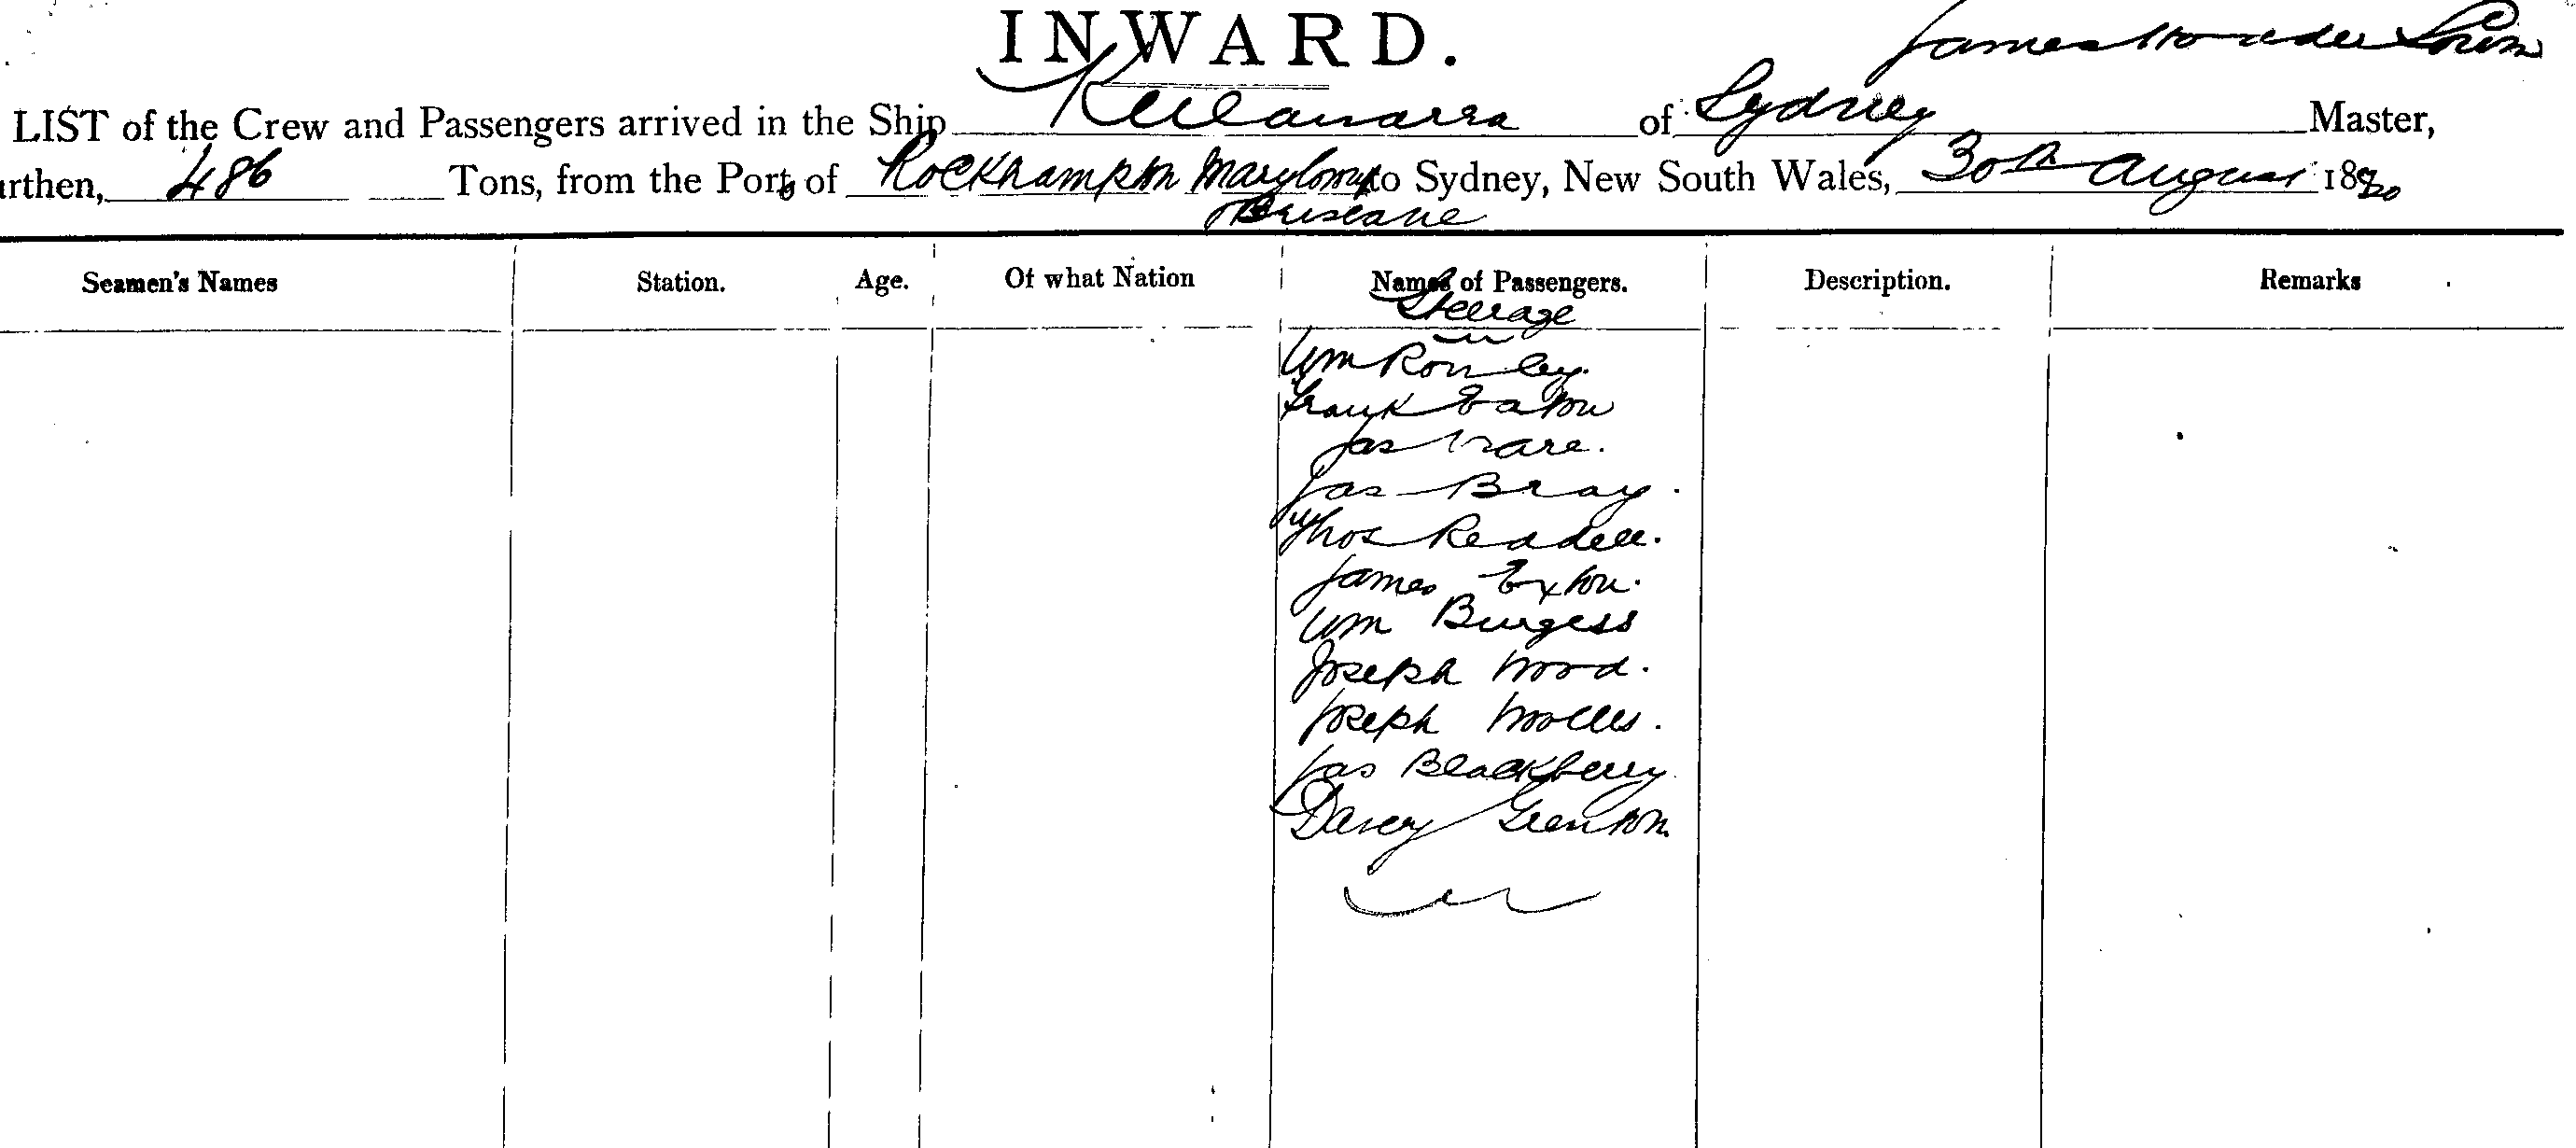 INWARD.
James
LIST of the Crew and Passengers arrived in the Ship Keilawarra of Sydney Master,
urthen, 486 Tons, from the Ports of Rockhampton Maryboro to Sydney, New South Wales, 30th August 1880
Brisbane
Seamen's Names Station. Age. Of what Nation Names of Passengers. Description. Remarks
Steerage
Wm Romley.
Frank Eaton
Jas Ware.
Jas Bray.
Thos Readell.
James Exton.
Wm Burgess
Joseph Wood.
Joseph
Jas Blackberry
Darcy Grenton